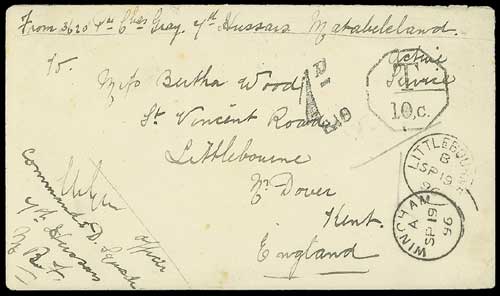 From 3620 Pte Chas Gray. 7th Hussars Matabeleland.
Active
Service
To.
Miss Bertha Wood
St. Vincent Road
Littlebourne
Nr. Dover
Kent.
England
T
10,c.
1D
LITTLEBOURNE
B
SP 19
96
WINGHAM
A
SP 19
96
officer
Commander D. Squad
7th Hussars
M R F.